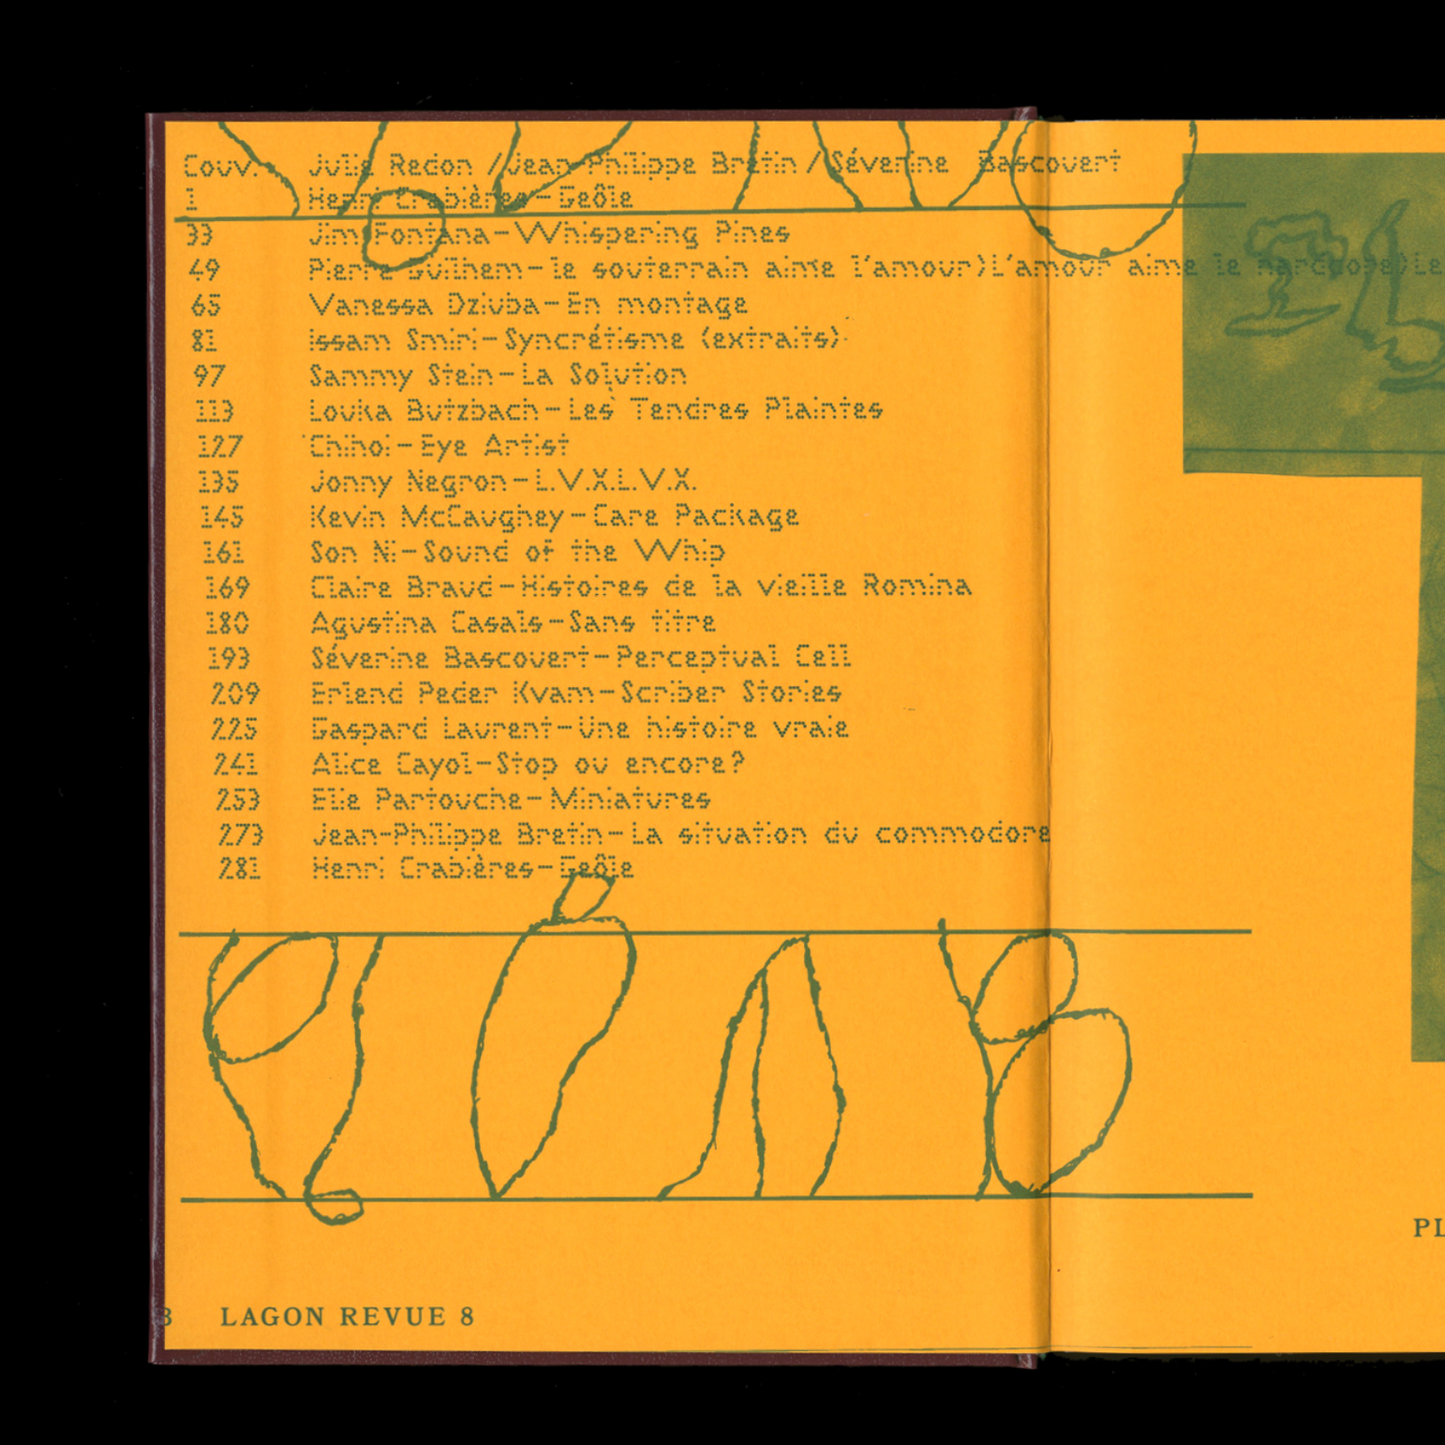 Couv. Julie Redon / Jean-Philippe Bretin / Séverine Bascouert
1 Henri Crabières – Geôle
33 Jim Fontana – Whispering Pines
49 Pierre Guilhem – le souterrain aime l'amour)L'amour aime le
65 Vanessa Dziuba – En montage
81 issam Smiri – Syncrétisme (extraits)
97 Sammy Stein – La Solution
113 Louka Butzbach – Les Tendres Plaintes
127 Chihoi – Eye Artist
135 Jonny Negron – L.V.X.L.V.X.
145 Kevin McCaughey – Care Package
161 Son Ni – Sound of the Whip
169 Claire Braud – Histoires de la vieille Romina
180 Agustina Casals – Sans titre
193 Séverine Bascouert – Perceptual Cell
209 Erlend Peder Kvam – Scriber Stories
225 Gaspard Laurent – Une histoire vraie
241 Alice Cayol – Stop ou encore?
253 Elie Partouche – Miniatures
273 Jean-Philippe Bretin – La situation du commodore
281 Henri Crabières – Geôle
PL
3 LAGON REVUE 8